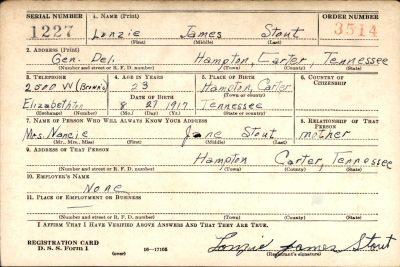 SERIAL NUMBER 1. NAME (Print) ORDER NUMBER
1227 Lonzie James Stout 3514
(First) (Middle) (Last)
2. ADDRESS (Print)
Gen. Del. Hampton, Carter, Tennessee
(Number and street or R. F. D. number) (Town) (County) (State)
3. TELEPHONE 4. AGE IN YEARS 5. PLACE OF BIRTH 6. COUNTRY OF CITIZENSHIP
23 Hampton, Carter
DATE OF BIRTH (Town or county)
Elizabethton 8 27 1917 Tennessee
(Exchange) (Number) (Mo.) (Day) (Yr.) (State or country)
7. NAME OF PERSON WHO WILL ALWAYS KNOW YOUR ADDRESS 8. RELATIONSHIP OF THAT PERSON
Mrs. Nancie Jane Stout mother
(Mr., Mrs., Miss) (First) (Middle) (Last)
9. ADDRESS OF THAT PERSON
Hampton Carter, Tennessee
(Number and street or R. F. D. number) (Town) (County) (State)
10. EMPLOYER'S NAME
None
11. PLACE OF EMPLOYMENT OR BUSINESS
(Number and street or R. F. D. number) (Town) (County) (State)
I AFFIRM THAT I HAVE VERIFIED ABOVE ANSWERS AND THAT THEY ARE TRUE.
REGISTRATION CARD
D. S. S. Form 1 (over) 16—17105 Lonzie James Stout
(Registrant's signature)